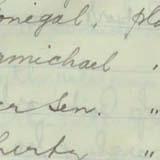 onegal, pla
rmichael "
er Sen. "
herty "